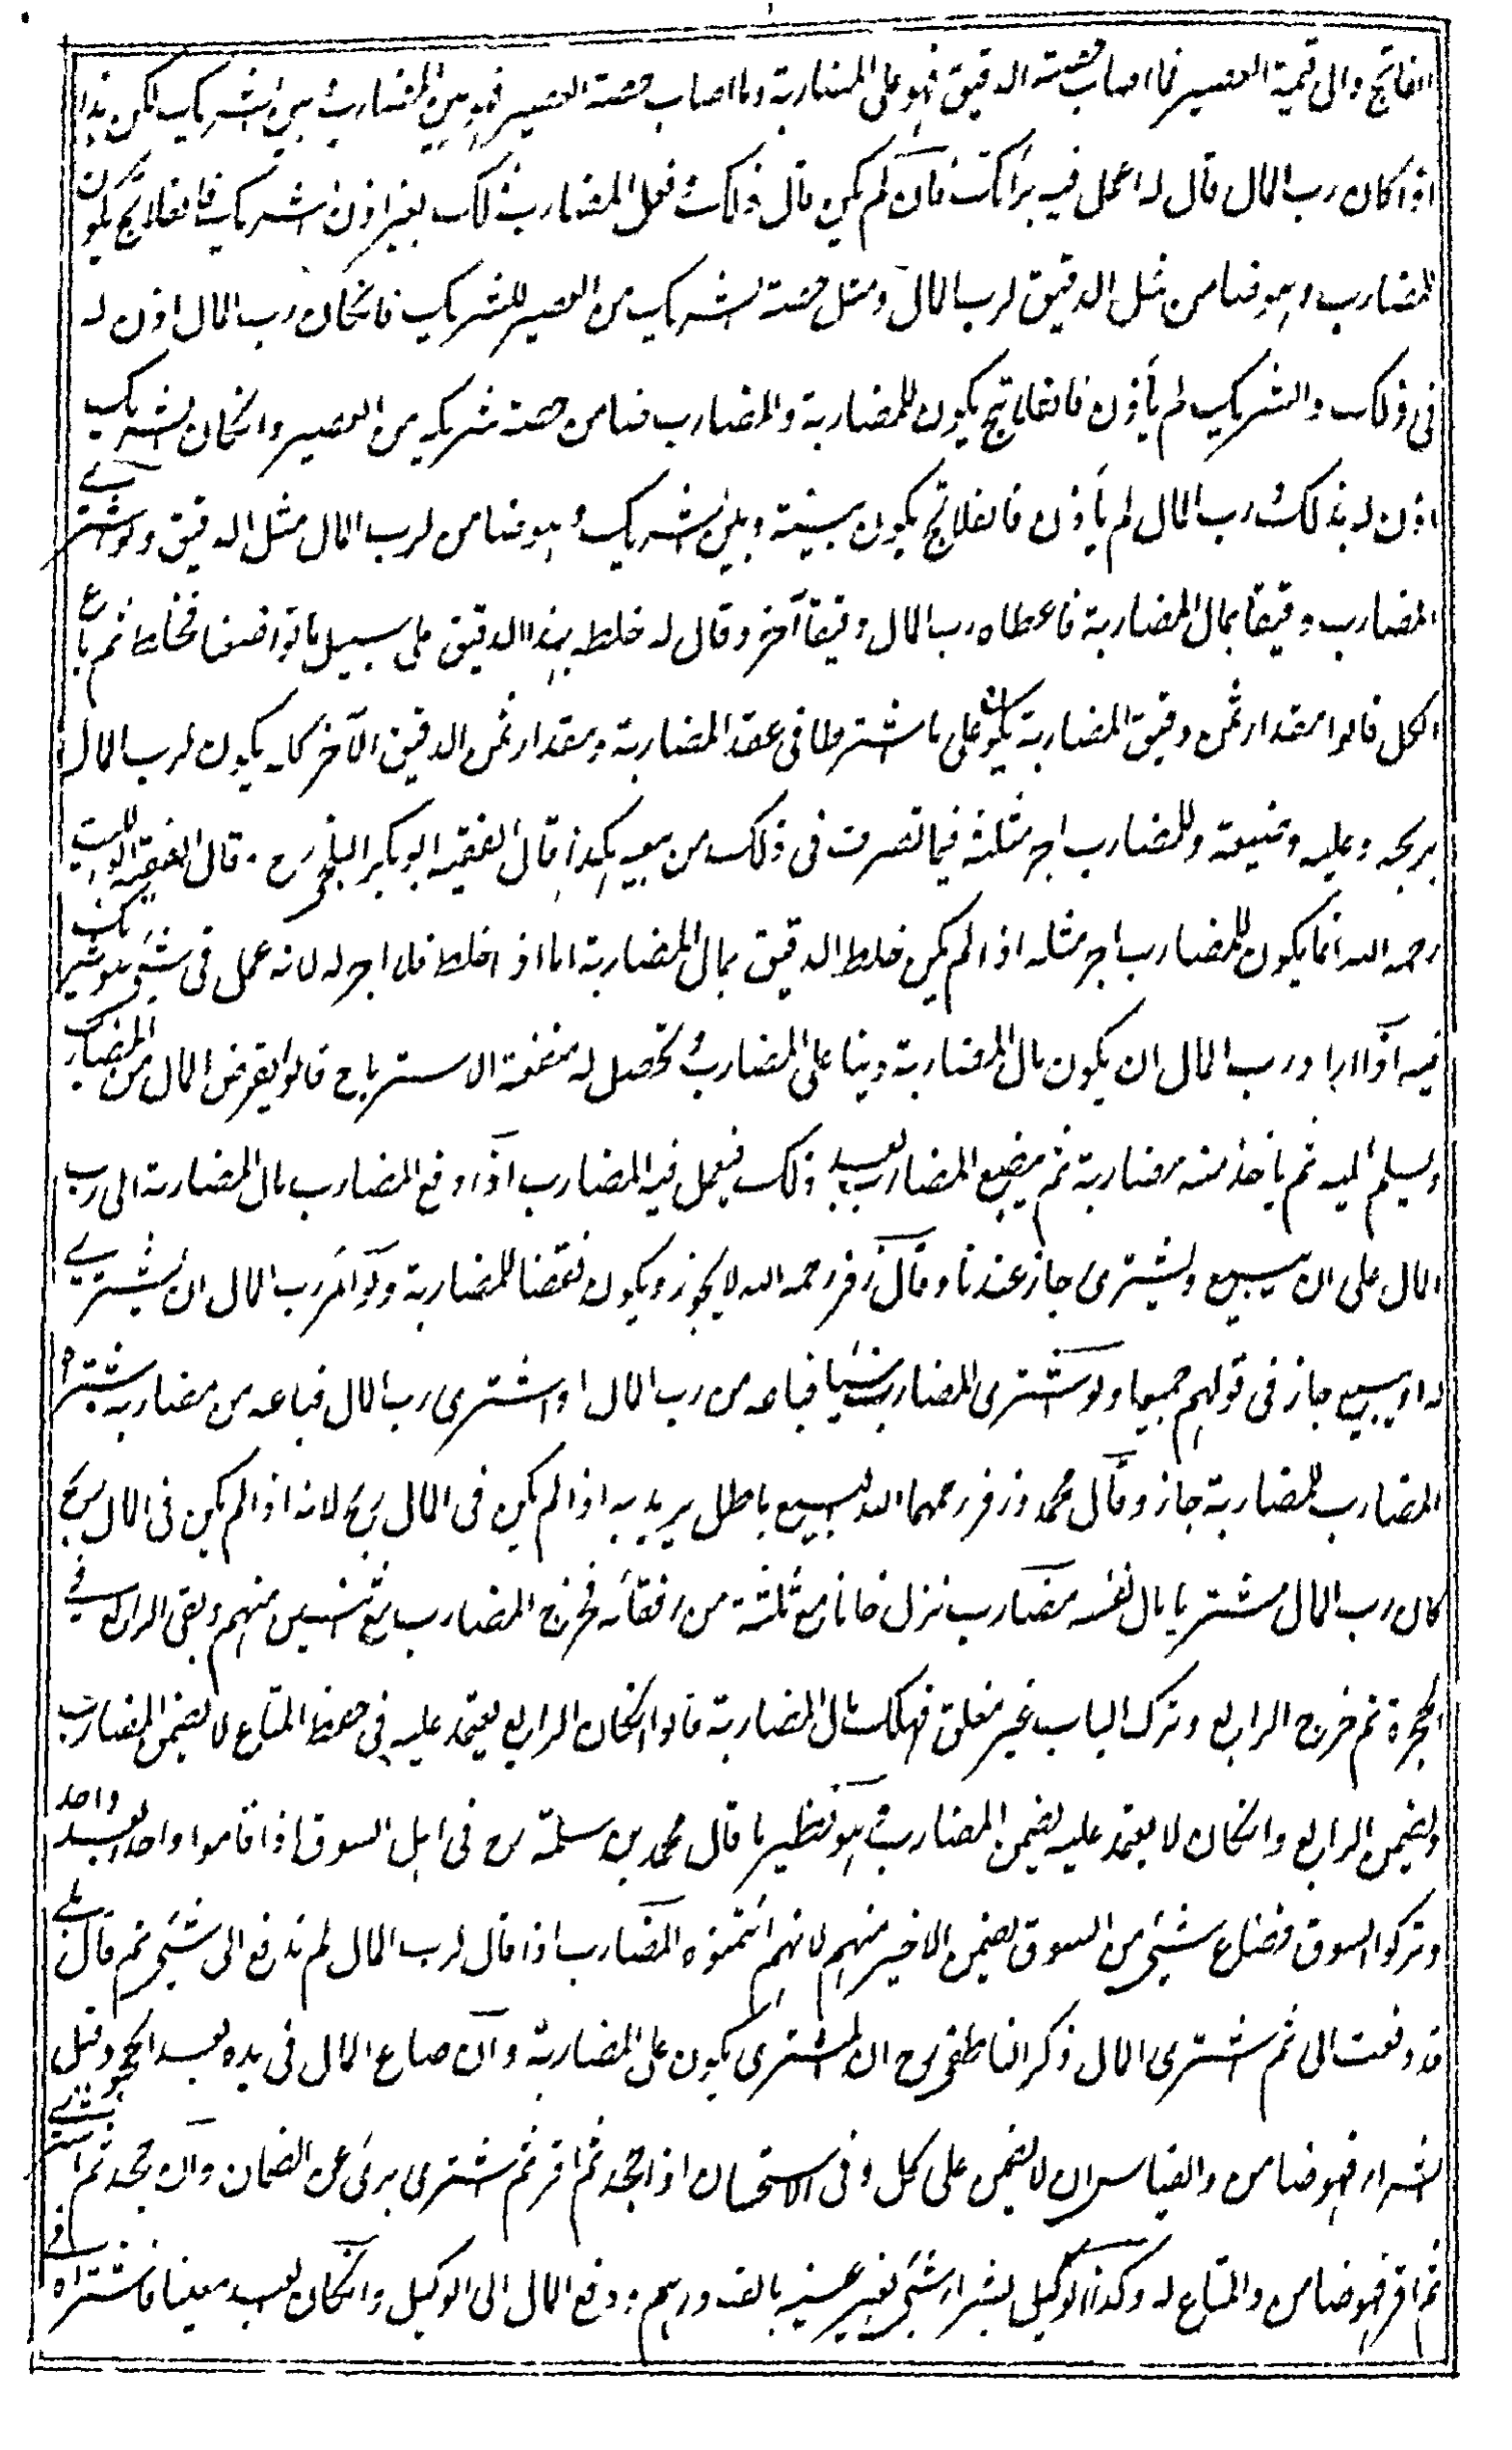 الفلاتج والى قيمة العصير فما اصاب حصة الدقيق فهو على المضاربة وما اصاب حصة العصير فهو بين المضارب وبين الشريك لكن هذا
اذا كان رب المال قال له اعمل فيه برأيك فان لم يكن قال ذلك وفعل المضارب ذلك بغير اذن الشريك فالفلاتج يكون
للمضارب وهو ضامن مثل الدقيق لرب المال ومثل حصة الشريك من العصير للشريك فانكان رب المال اذن له
فى ذلك والشريك لم يأذن فالفلاتج يكون للمضاربة والمضارب ضامن حصة شريكه من العصير وانكان الشريك
اذن له بذلك ورب المال لم يأذن فالفلاتج يكون بينه وبين الشريك وهو ضامن لرب المال مثل الدقيق ولو اشترى
المضارب دقيقا بمال المضاربة فاعطاه رب المال دقيقا آخر وقال له خلط بهذا الدقيق على سبيل ما تواضعنا فخلط ثم باع
الكل قالوا مقدار ثمن دقيق المضاربة يكون على ما اشترطا فى عقد المضاربة ومقدار ثمن الدقيق الآخر كله يكون لرب المال
ربحه وعليه وضيعة وللمضارب اجر مثله فيما تصرف فى ذلك من بيعه هكذا قال الفقيه ابو بكر البلخى رح . قال الفقيه ابو الليث
رحمه الله انما يكون للمضارب اجر مثله اذا لم يكن خلط الدقيق بمال المضاربة اما اذا خلط فلا اجر له لانه عمل فى شئ هو شريك
فيه اذا اراد رب المال ان يكون مال المضاربة دينا على المضارب وتحصل له منفعة الاسترباح قالوا يقرض المال من المضارب
ويسلم اليه ثم ياخذ منه مضاربة ثم يبضع المضارب بعد ذلك فيعمل فيه المضارب اذا دفع المضارب مال المضاربة الى رب
المال على ان يبيع ويشترى جاز عندنا وقال زفر رحمه الله لا يجوز ويكون نقضا للمضاربة ولو امر رب المال ان يشترى
له او يبيع جاز فى قولهم جميعا ولو اشترى المضارب شيئا فباعه من رب المال او اشترى رب المال فباعه من مضاربه شراه
المضارب للمضاربة جاز وقال محمد وزفر رحمهما الله البيع باطل يريد به اذا لم يكن فى المال ربح لانه اذا لم يكن فى المال ربح
كان رب المال مشتريا مال نفسه مضارب نزل خانا مع ثلثة من رفقائه فخرج المضارب مع اثنين منهم وبقى الرابع فى
الحجرة ثم خرج الرابع وترك الباب غير مغلق فهلك مال المضاربة قالوا انكان الرابع يعتمد عليه فى حفظ المتاع لا يضمن المضارب
ويضمن الرابع وانكان لا يعتمد عليه يضمن المضارب وهو نظير ما قال محمد بن سلمة رح فى اهل السوق اذا قاموا واحد بعد واحد
وتركوا السوق فضاع شئ من السوق يضمن الاخير منهم لانهم ائتمنوه المضارب اذا قال لرب المال لم تدفع الى شئ ثم قال بلى
قد دفعت الى ثم اشترى المال ذكر الناطفى رح ان المشترى يكون على المضاربة وان ضاع المال فى يده بعد الجحود قبل
الشراء فهو ضامن والقياس ان لا يضمن على كل وفى الاستحسان اذا جحد ثم اقر ثم اشترى برئ عن الضمان وان جحد ثم اشترى
ثم اقر فهو ضامن والمتاع له وكذا الوكيل بشراء شئ بغير عينه بالف درهم ودفع المال الى الوكيل وانكان العبد معينا فاشتراه فى